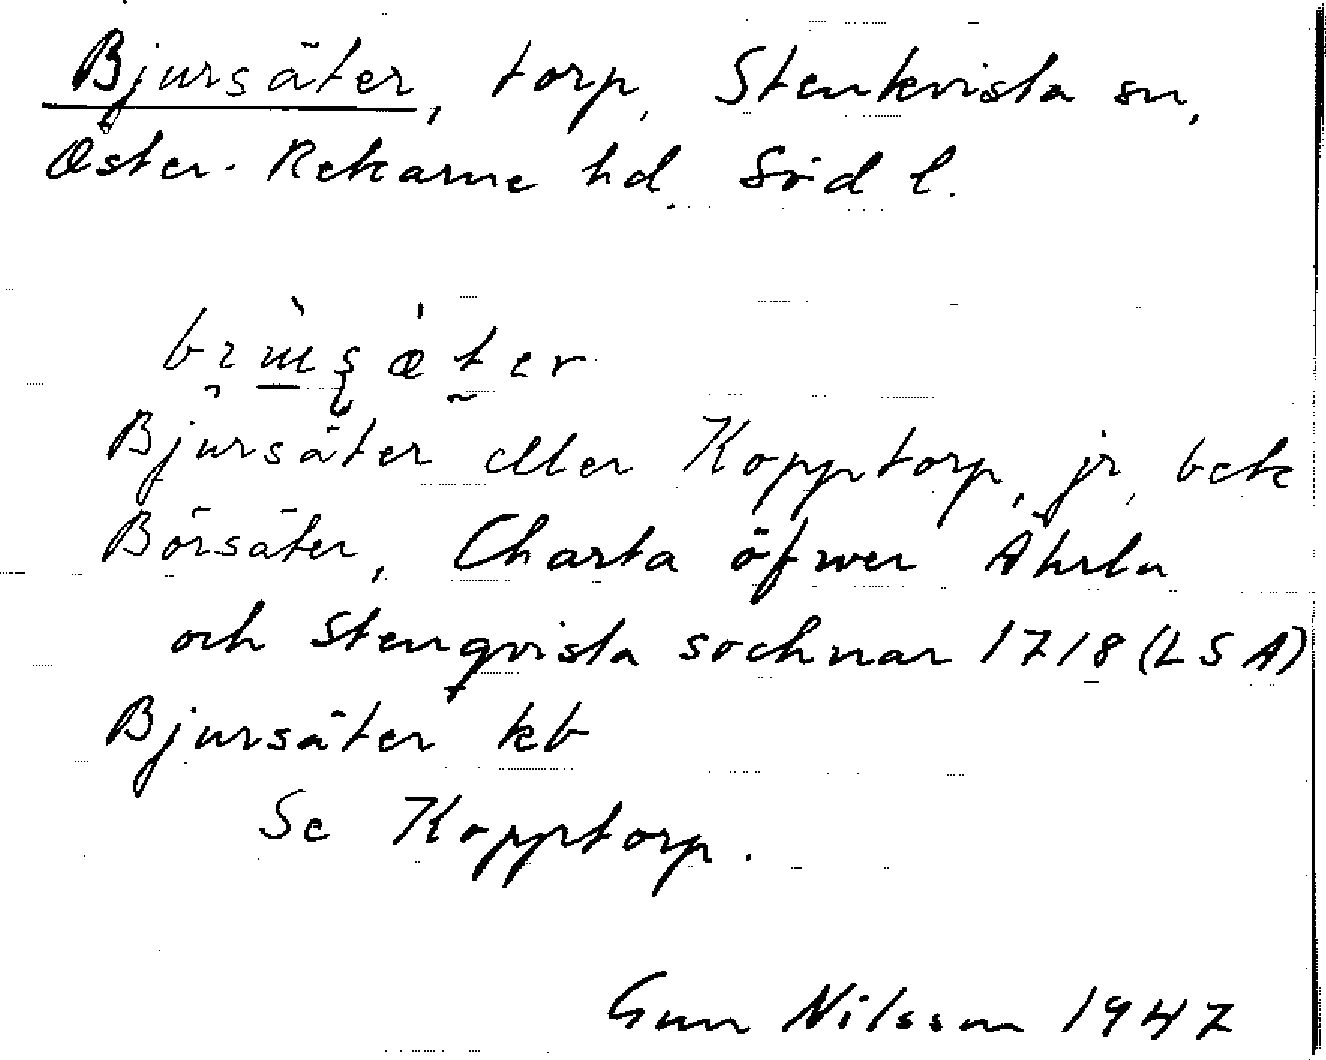 Bjursäter, torp, Stenkvista sn,
Öster-Rekarne hd. Söd l.
Bjursäter eller Kopptorp, jr, bek
Börsäter, Charta öfwer Ährla
och Stenqvista sochnar 1718 (LSA)
Bjursäter kb
Se Kopptorp.
Gun Nilsson 1947